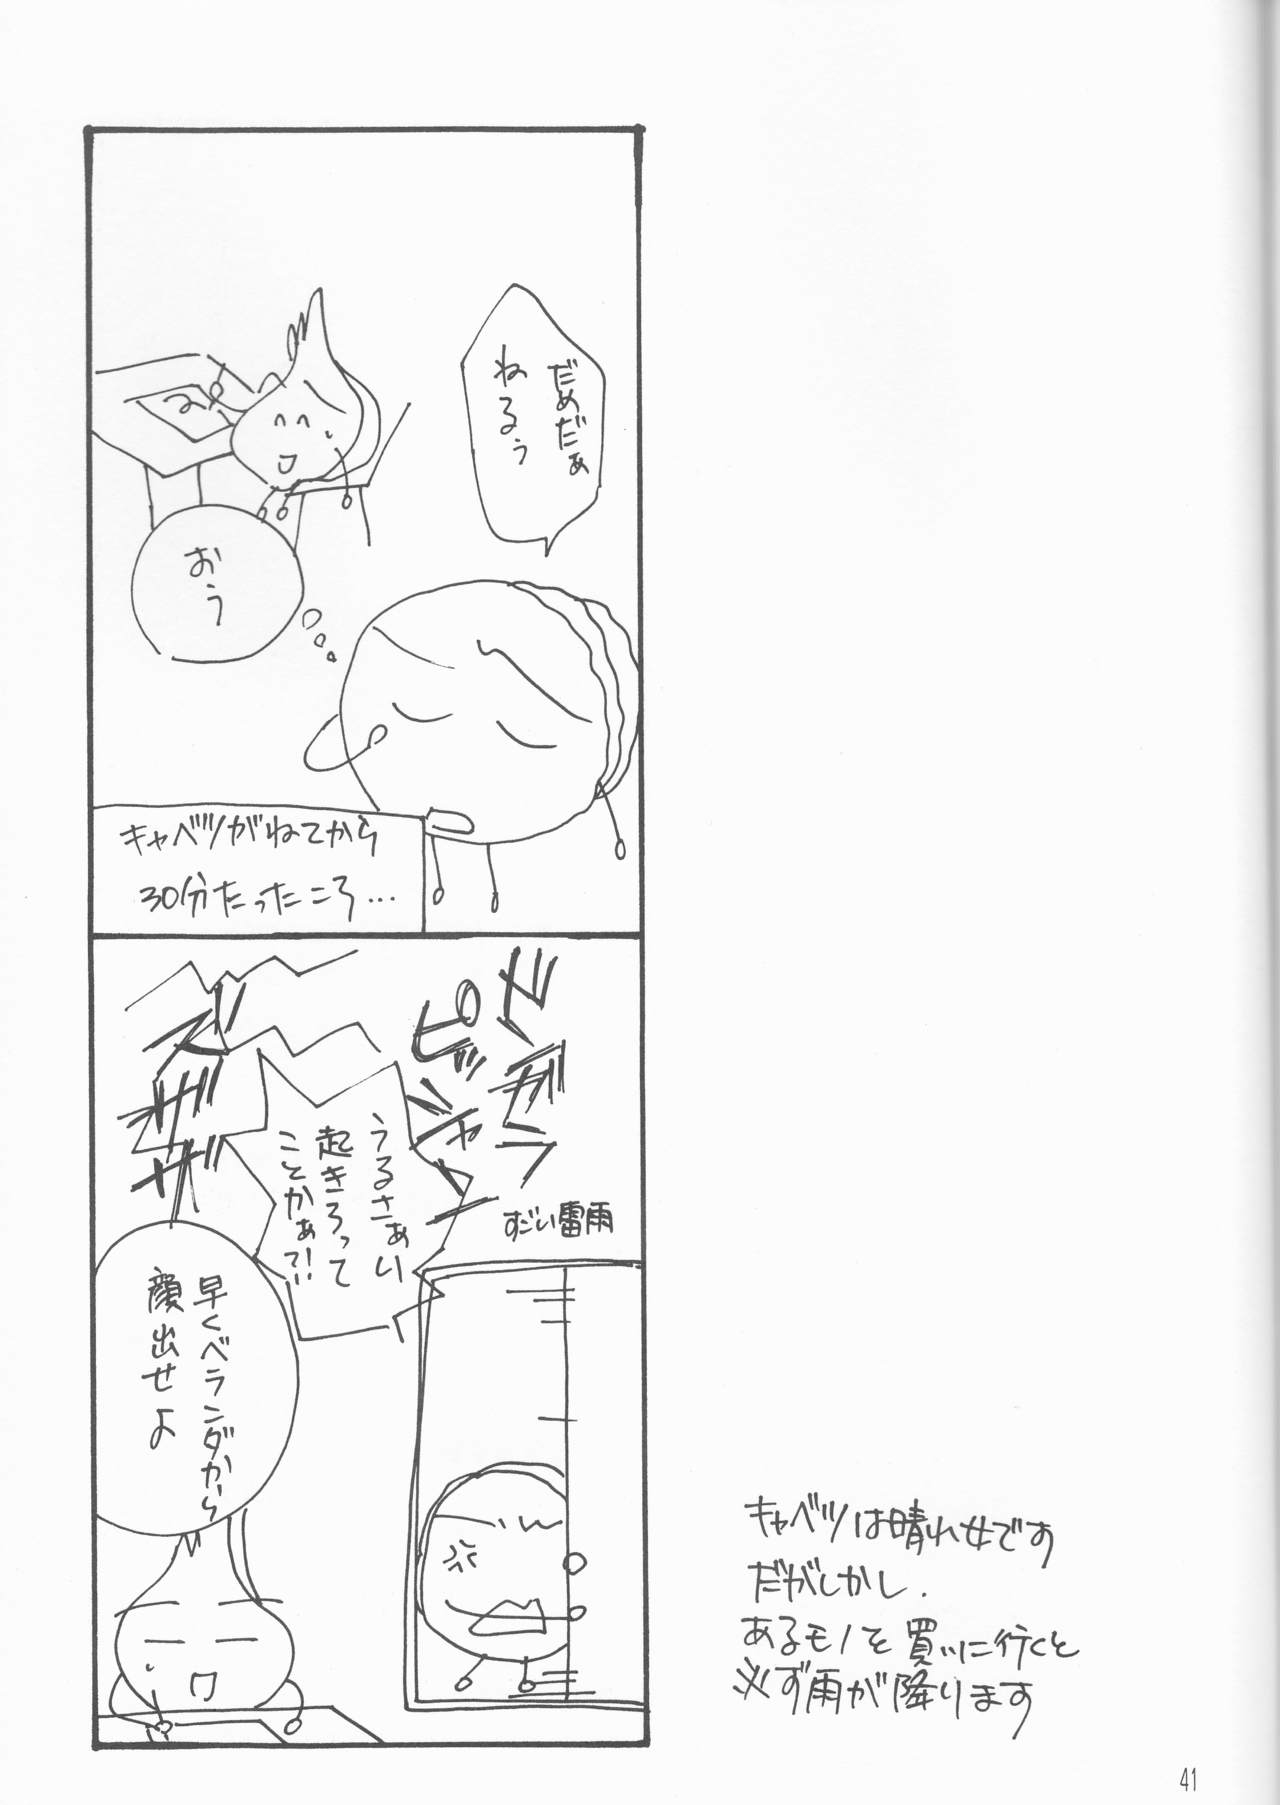 だめだぁ
ねるぅ
おう
キャベツがねてから
30分たったころ…
ドガラ
ピッシャー
ズザザ
すごい雷雨
うるさぁい
起きろって
ことかぁ?!
早くベランダから
顔出せよ
キャベツは晴れ女です
だがしかし.
あるモノを買いに行くと
必ず雨が降ります
41